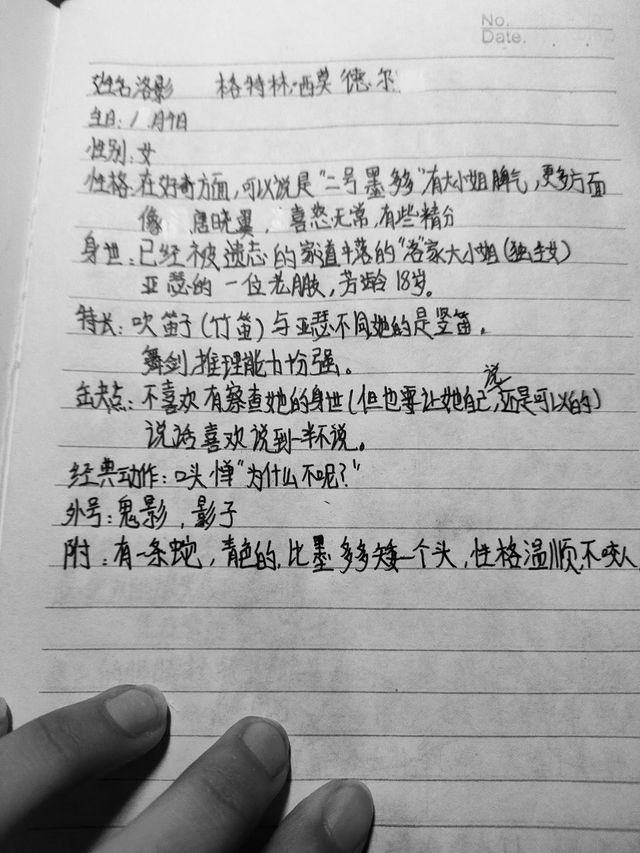 No.
Date.
姓名洛影 格特林·西莫德尔
生日:1月9日
性别:女
性格:在好奇方面,可以说是"二号墨多多"有大小姐脾气,更多方面
像 唐晓翼,喜怒无常,有些精分
身世:已经被遗忘的家道中落的"洛"家大小姐(独生女)
亚瑟的一位老朋友,芳龄18岁。
特长:吹笛子(竹笛)与亚瑟不同她的是竖笛。
舞剑,推理能力极强。
缺点:不喜欢有察查她的身世(但也要让她自己说,还是可以的)
说话喜欢说到一半不说。
经典动作:口头惮"为什么不呢?"
外号:鬼影,影子
附:有一条蛇,青色的,比墨多多矮一个头,性格温顺,不咬人